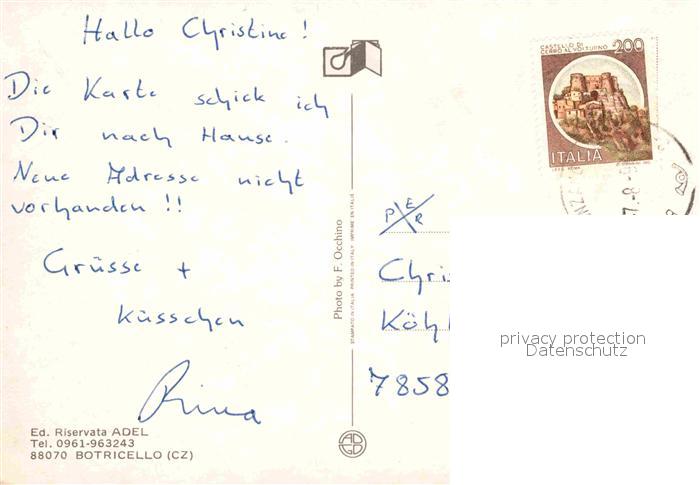 Hallo Christine!
Die Karte schick ich
Dir nach Hause.
Neue Adresse nicht
vorhanden!!
Grüsse +
Küsschen
Rina
Ed. Riservata ADEL
Tel. 0961-963243
88070 BOTRICELLO (CZ)
Photo by F. Occhino
STAMPATO IN ITALIA PRINTED IN ITALY IMPRIMÉ EN ITALIE
CASTELLO DI
CERRO AL VOLTURNO 200
ITALIA
PER
Chris
Köhl
7858
privacy protection
Datenschutz